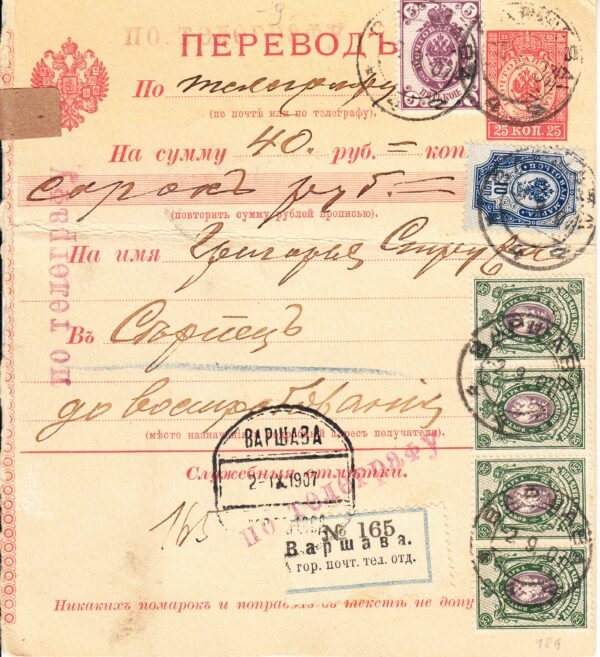 -9
по телеграфу
ПЕРЕВОДЪ
5 5
По телеграфу
(по почтѣ или по телеграфу).
25 КОП. 25
На сумму 40. руб. = коп
сорокъ руб. =
(повторить сумму рублей прописью).
10
На имя Григорія
по телеграфу
Въ Сѣрпецъ
до востребованія
(мѣсто назначенія адресъ получателя).
ВАРШАВА
2-IX.1907
Служебныя отмѣтки.
по телеграфу
165
№ 165
Варшава.
гор. почт. тел. отд.
ВАРШАВА
2 9 07
Никакихъ помарокъ и поправокъ въ текстѣ не допу
189